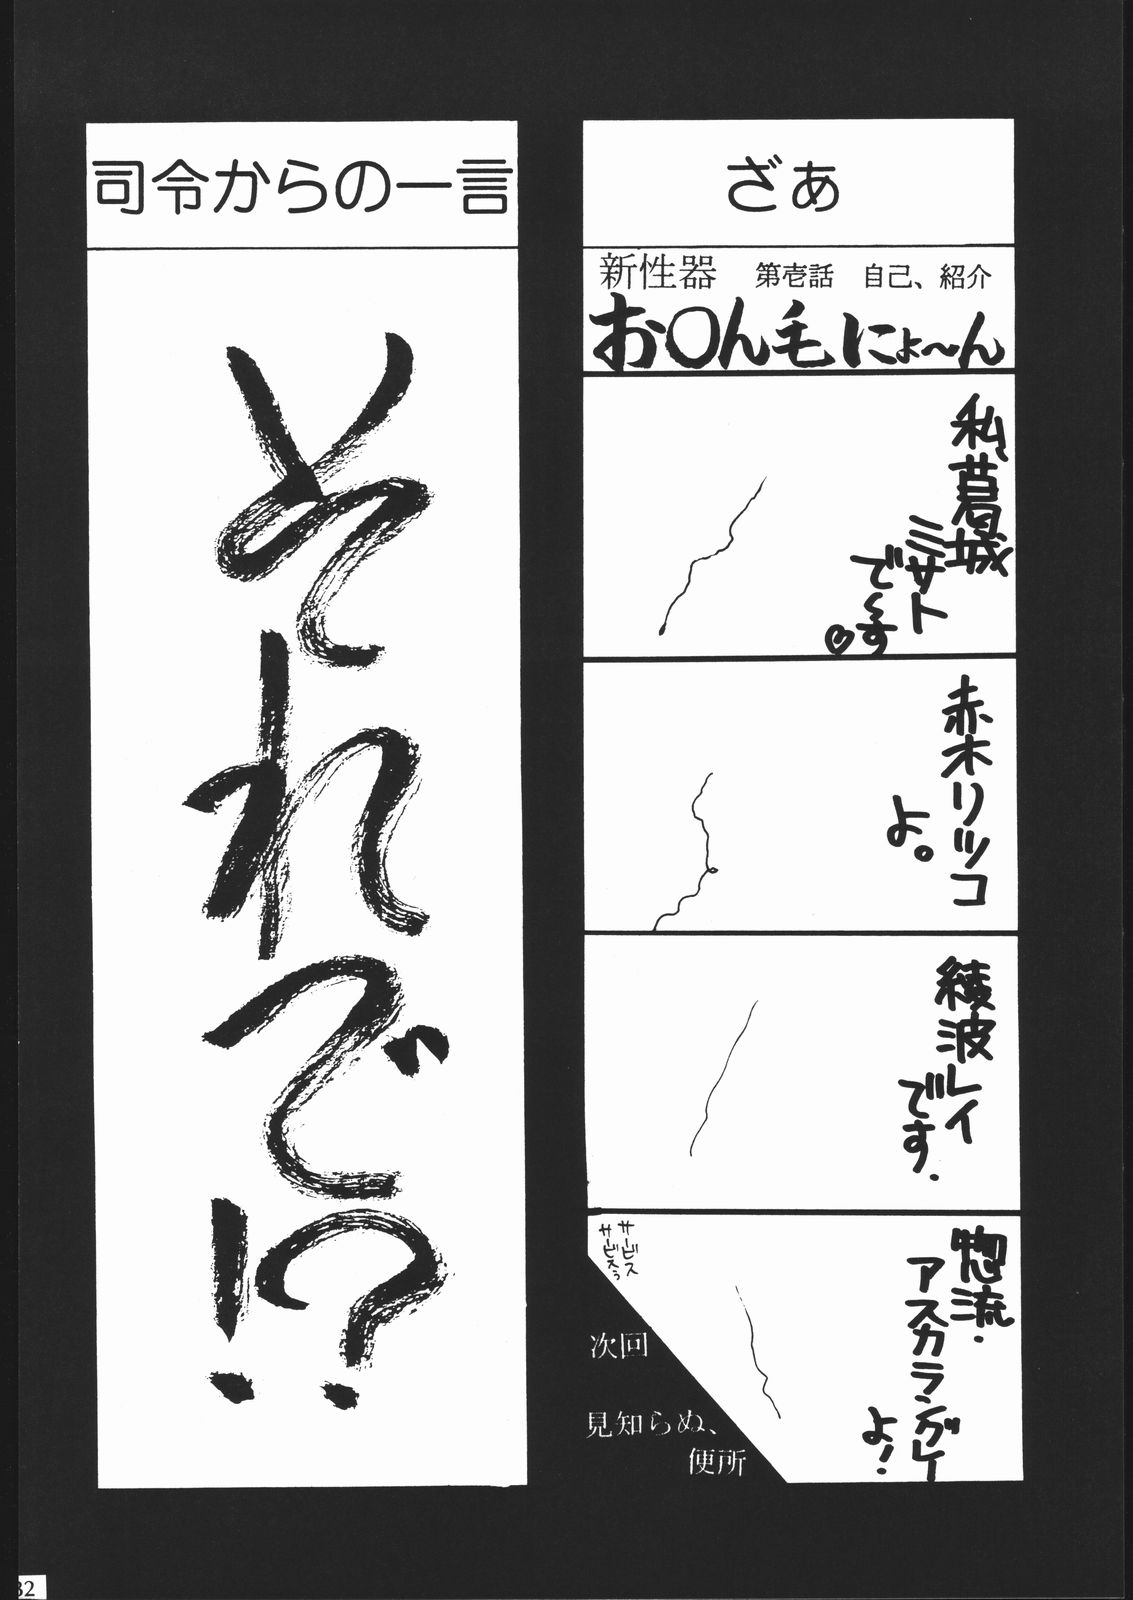 ざぁ
新性器 第壱話 自己、紹介
お〇ん毛にょ〜ん
私、葛城
ミサト
で〜す
赤木リツコ
よ。
綾波レイ
です.
惣流・
アスカラングレー
よ!
サービス
サービスぅ
次回
見知らぬ、
便所
司令からの一言
それで!?
32